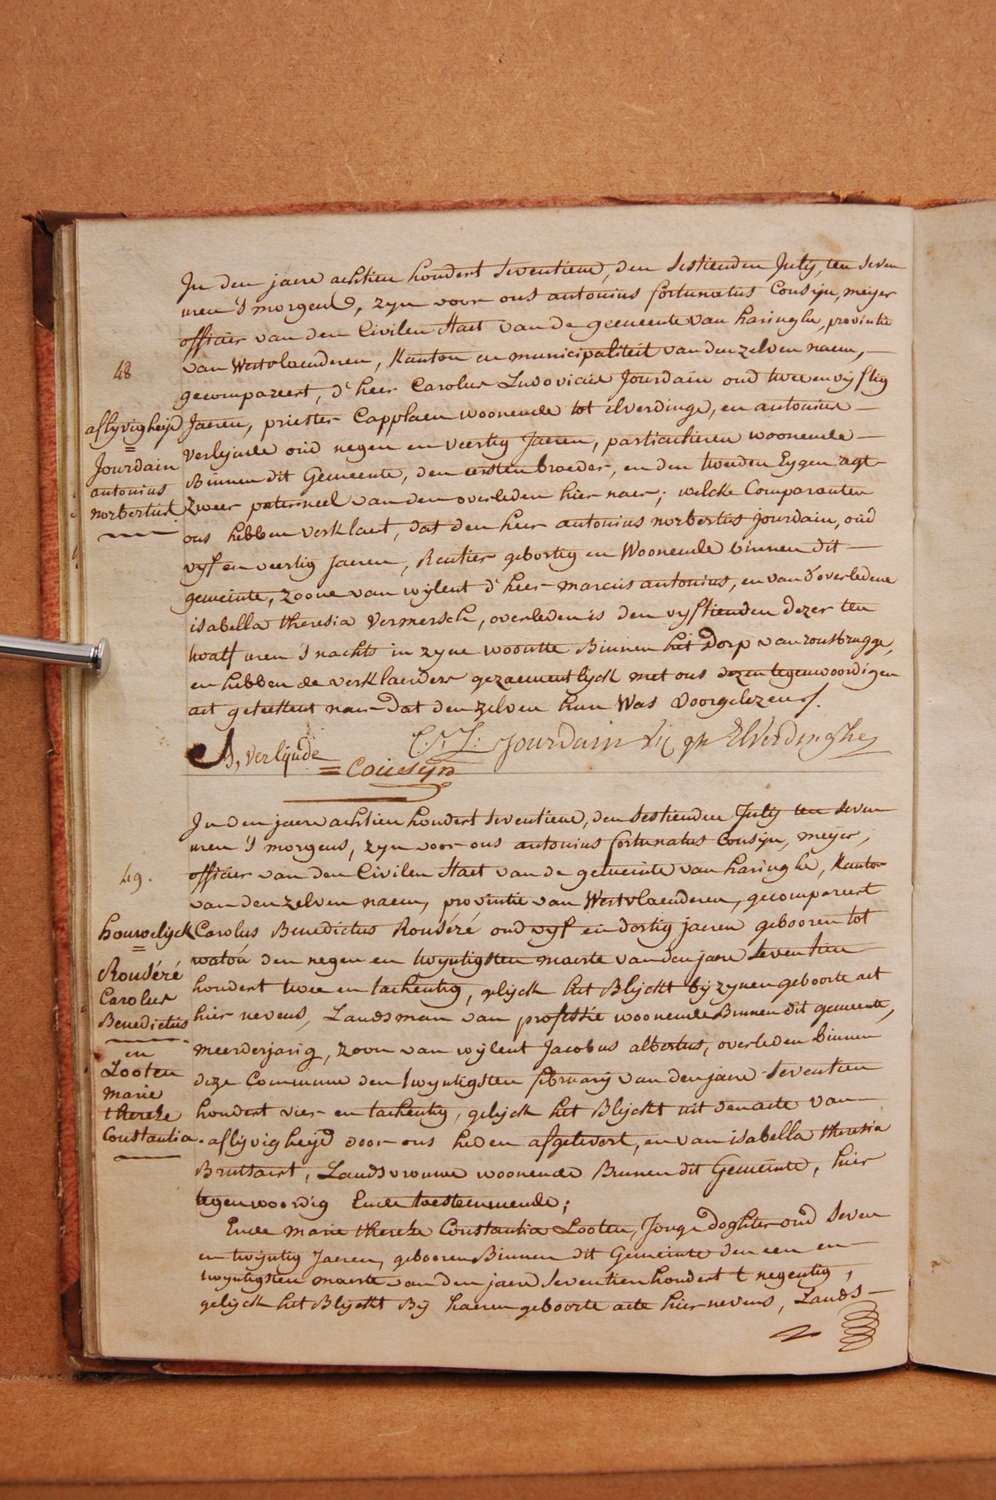 48
aflyvigheijd
Jourdain
antonius
norbertus.
In den jaere achtien hondert seventiene, den sestienden July, ten seven
uren 's morgens, zyn voor ons antonius fortunatus Cousijn, meijer
officier van den Civilen Staet van de gemeente van haringhe, provintie
van Westvlaenderen, Kanton en municipaliteit van den zelven naem,
gecompareert, d'heer Carolus Ludovicus Jourdain oud twee en vyftig
Jaeren, priester Cappelaen woonende tot elverdinge, en antonius
verlynde oud negen en veertig Jaeren, particulieren woonende
Binnen dit Gemeente, den eersten broeder, en den tweeden Eygen agt
zweer paterneel van den overleden hier naer; welcke Comparanten
ons hebben verklaert, dat den heer antonius norbertus jourdain, oud
vyf en veertig Jaeren, Rentier gebortig en Woonende binnen dit
gemeente, zoone van wylent d'heer marcus antonius, en van d'overledene
isabella theresia vermersch, overleden is den vyftienden dezer ten
twalf uren 's nachts in zyne woonste Binnen het Dorp van rousbrugge,
en hebben de verklaerders gezaementlyck met ons dezen tegenwoordigen
act geteekent naer dat den zelven hun Was Voorgelezen.
C. L. Jourdain Elverdinghe
A, verlynde
= Cousijn
49.
houwelijck
Roudéré
Carolus
Benedictus
en
Looten
marie
thereze
Constantia.
In den jaere achtien hondert seventiene, den sestienden July ten seven
uren 's morgens, zyn voor ons antonius fortunatus Cousijn, meyer,
officier van den Civilen Staet van de gemeinte van haringhe, Kanton
van den zelven naem, provintie van Westvlaenderen, gecompareert
Carolus Benedictus Roudéré oud vyf en dertig jaeren gebooren tot
watou den negen en twyntigsten maerte van den jaere seventien
hondert twee en tachentig, gelijck het Blyckt bij zynen geboorte act
hier nevens, Landsman van professie woonende Binnen dit gemeente,
meerderjarig, zoon van wylent Jacobus albertus, overleden binnen
deze Commune den twyntigsten february van den jaere seventien
hondert vier en tachentig, gelijck het Blyckt uit den acte van
aflijvigheijd door ons heden afgelevert, en van isabella theresia
Bruttaert, Landsvrouwe woonende Binnen dit Gemeinte, hier
tegenwoordig Ende toestemmende;
Ende marie thereze Constantia Looten, Jonge doghter oud seven
en twijntig Jaeren, gebooren Binnen dit Gemeinte den een en
twyntigsten maerte van den jaere seventien hondert t negentig,
gelijck het Blyckt Bij haeren geboorte acte hier nevens, Lands-